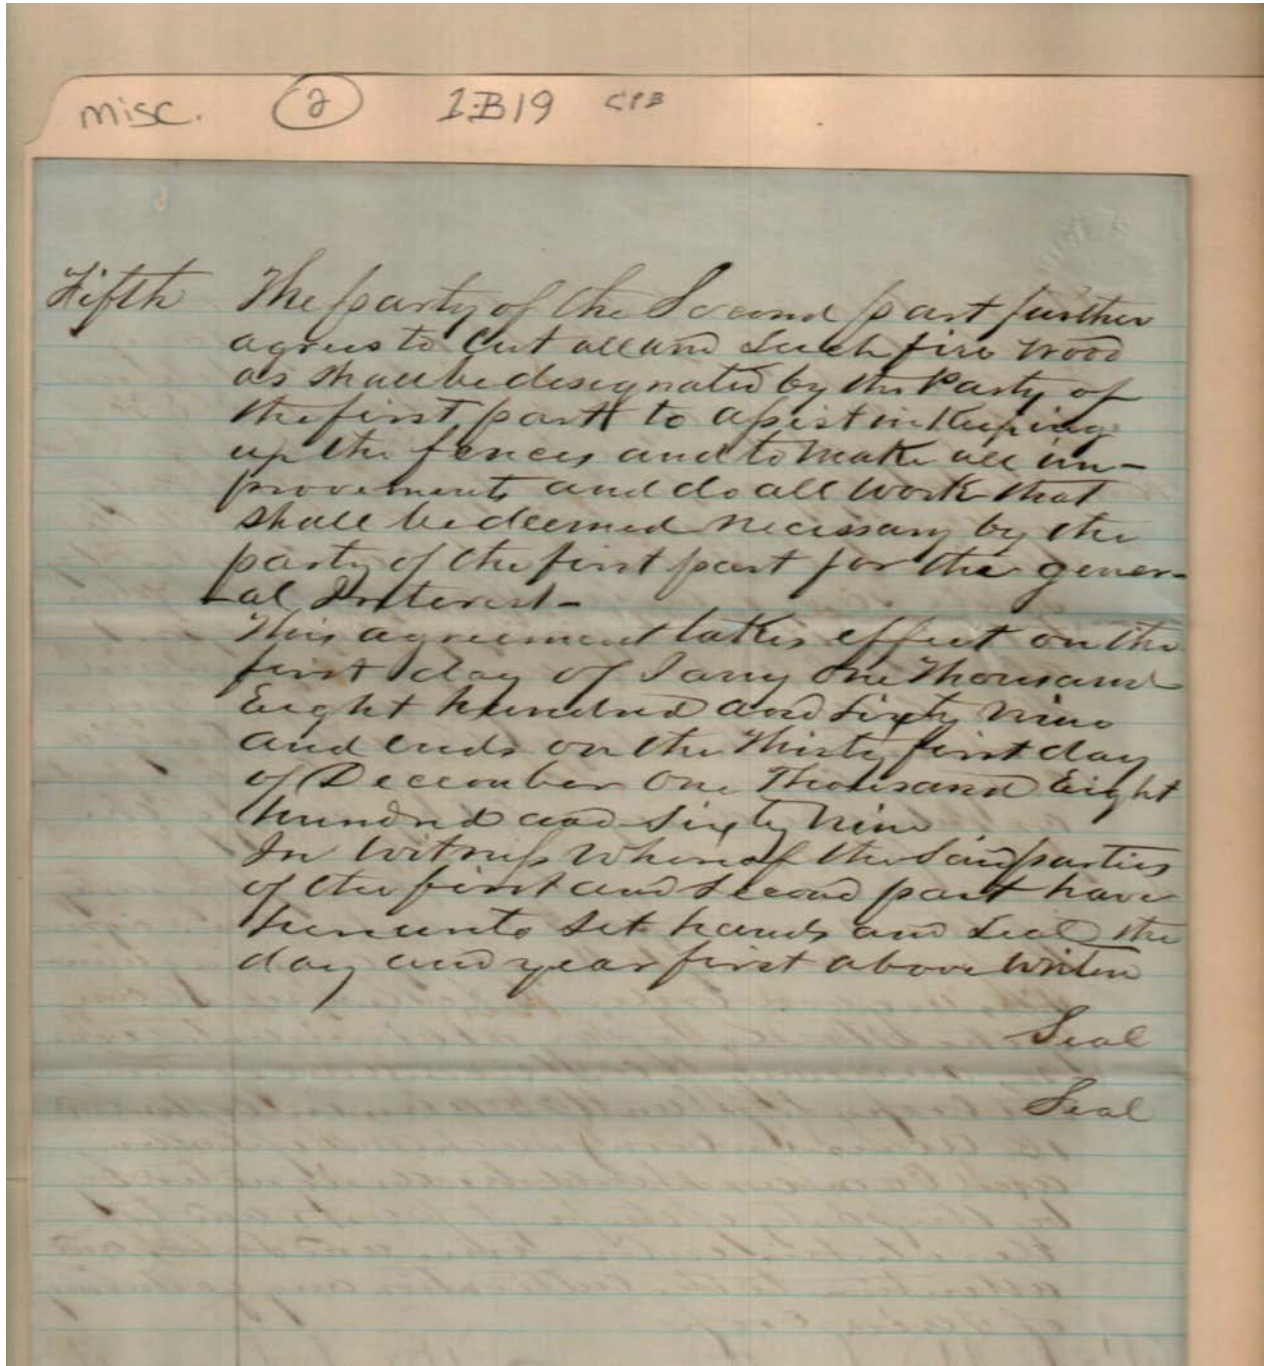 misc. 2 1B19 CPB
Fifth The party of the Second part further
agrees to Cut all and Such fire Wood
as shall be designated by the Party of
the first part to assist in Keeping
up the fences and to Make all im-
provements and do all Work that
Shall be deemed necessary by the
party of the first part for the gener-
al Interest-
This agreement takes effect on the
first day of Jany One Thousand
Eight hundred and Sixty Nine
and ends on the Thirty first day
of December One Thousand Eight
hundred and Sixty Nine.
In Witness Whereof the Said parties
of the first and Second part have
hereunto Set hands and Seal the
day and year first above Writen
Seal
Seal